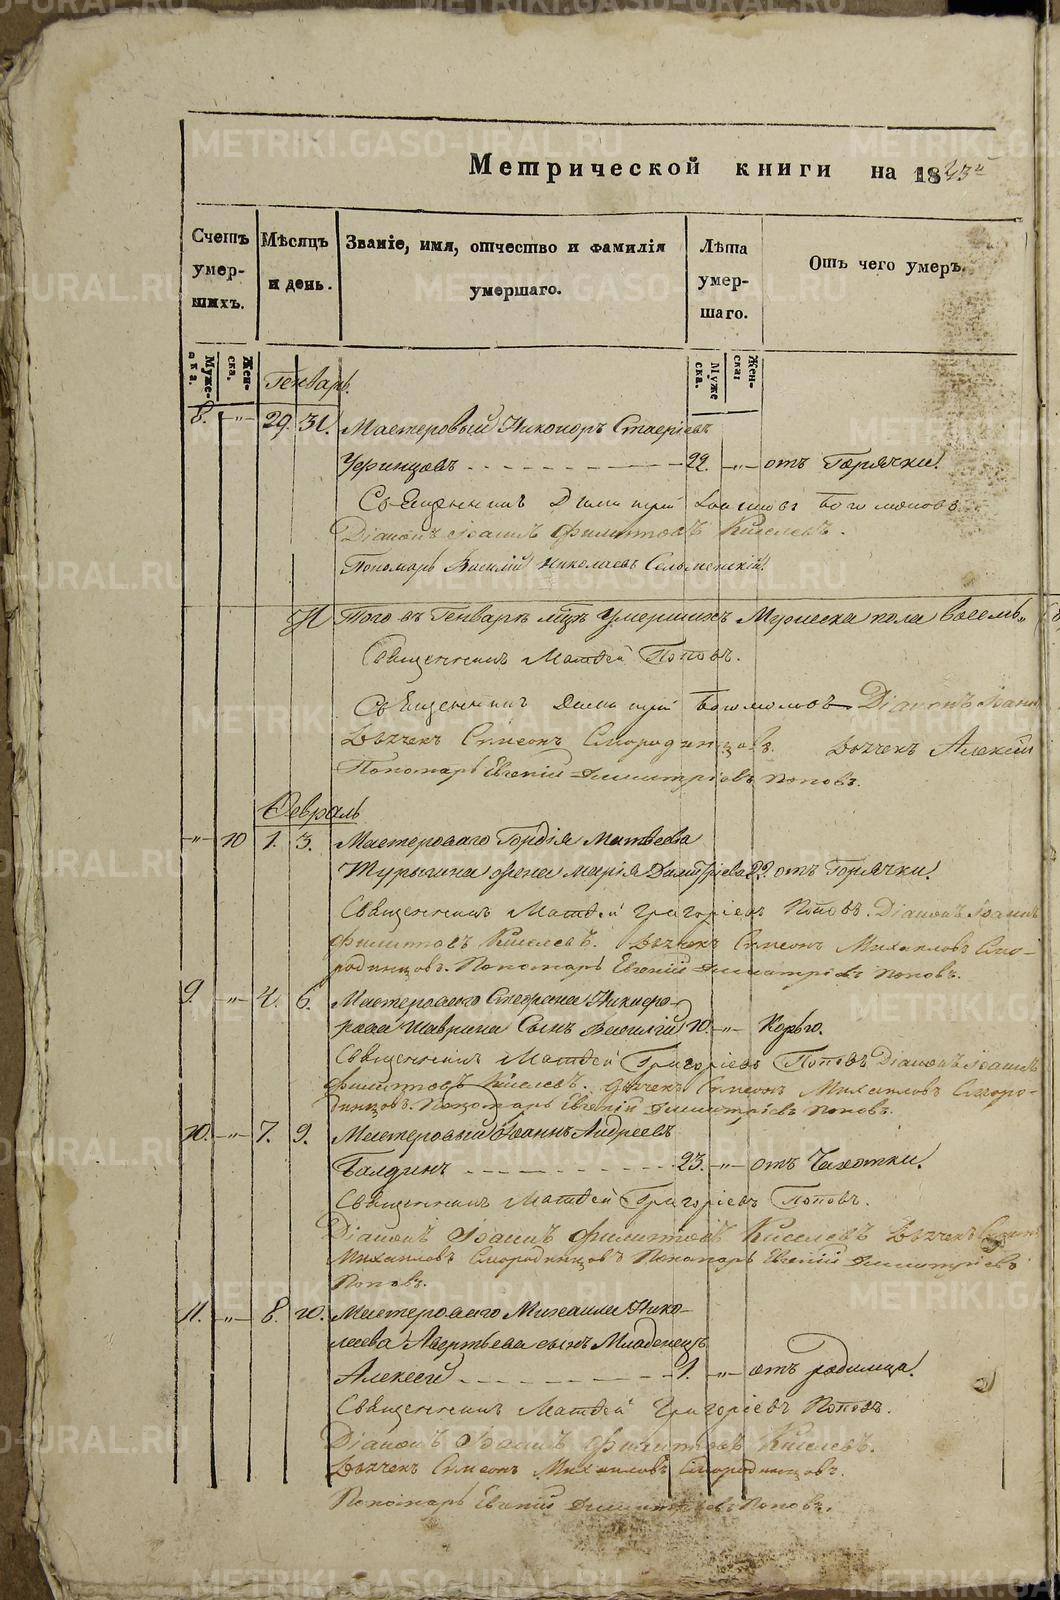 Метрической книги на 1843й
Счетъ умер- шихъ.
Мѣсяцъ и день.
Званіе, имя, отчество и фамилія умершаго.
Лѣта умер- шаго.
Отъ чего умеръ.
Муже- ска. Жен- ска.
Муже ска. Жен- ска
Генварь.
8. -"- 29. 31. Мастеровый Никоноръ
Уфинцовъ - - - 22. -"- отъ Горячки.
Священникъ Димитрій Богомоловъ
Діаконъ Іоаннъ Филиповъ Киселевъ.
Пономарь Василій Николаевъ
Того въ Генварѣ мцѣ Умершихъ Мужеска пола восемь, 8
Священникъ Матѳей Поповъ.
Священникъ Димитрій Богомоловъ Діаконъ Іоаннъ
Дьячекъ Симеонъ Смородинцовъ. Дьячекъ Алексій
Пономарь Евгеній Димитріевъ Поповъ.
Февраль
-"- 10 1. 3. Мастероваго Гордія Матвеева
Турыгина жена Марія Димитріева 22. отъ Горячки.
Священникъ Матѳей Григоріевъ Поповъ. Діаконъ Іоаннъ
Филиповъ Киселевъ. Дьячекъ Симеонъ Михаиловъ Смо-
родинцовъ. Пономарь Евгеній Димитріевъ Поповъ.
9. -"- 4. 6. Мастероваго Стефана Никифо-
рова Шаврина Сынъ Василій 10. -"- Корью.
Священникъ Матѳей Григоріевъ Поповъ Діаконъ Іоаннъ
Филиповъ Киселевъ. Дьячекъ Симеонъ Михаиловъ Сморо-
динцовъ. Пономарь Евгеній Димитріевъ Поповъ.
10. -"- 7. 9. Мастеровый Іоаннъ Андреевъ
Балдинъ - - - 23. -"- отъ Чахотки.
Священникъ Матѳей Григоріевъ Поповъ.
Діаконъ Іоаннъ Филиповъ Киселевъ Дьячекъ Симеонъ
Михаиловъ Смородинцовъ Пономарь Евгеній Димитріевъ
Поповъ.
11. -"- 8. 10. Мастероваго Михаила Нико-
лаева Лаертьева сынъ Младенецъ
Алексей - - - 1. -"- отъ родимца.
Священникъ Матѳей Григоріевъ Поповъ.
Діаконъ Іоаннъ Филиповъ Киселевъ.
Дьячекъ Симеонъ Михаиловъ Смородинцовъ.
Пономарь Евгеній Димитріевъ Поповъ.
METRIKI.GASO-URAL.RU